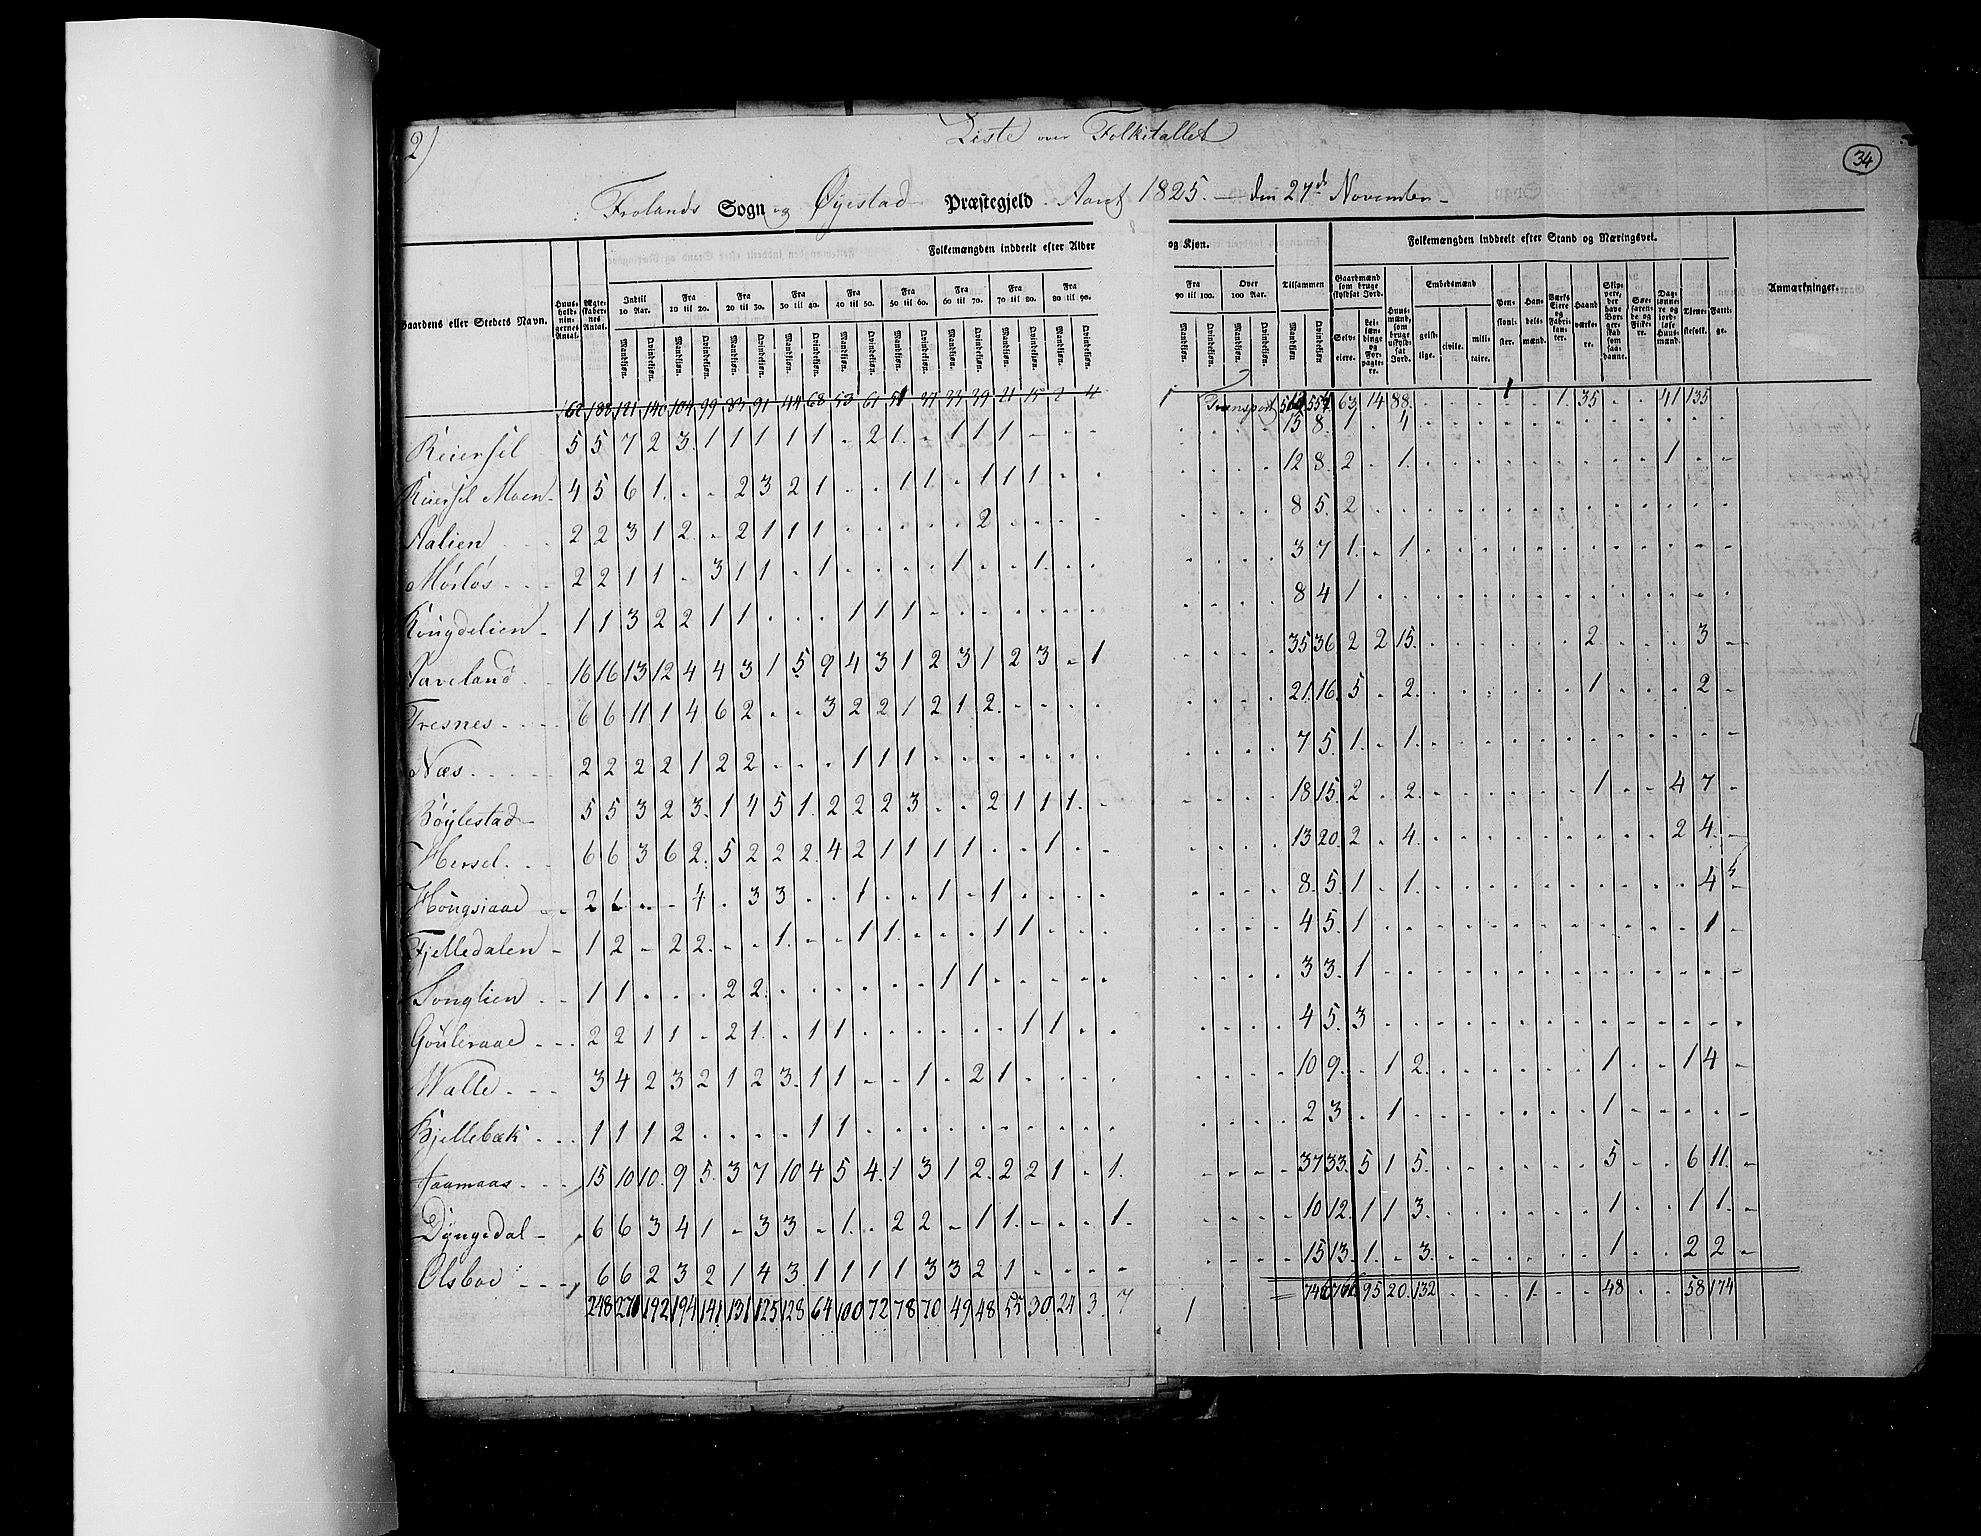 2)
Liste over Folketallet
34
Frolands Sogn og Øyestad Præstegjeld Aaret 1825. — den 27de November
Gaardens eller Stedets Navn.
Huusholdningernes Antal.
Ægteskabernes Antal.
Folkemængden inddeelt efter Alder
og Kjøn.
Folkemængden inddeelt efter Stand og Næringsvei.
Anmærkninger.
Indtil 10 Aar.
Fra 10 til 20.
Fra 20 til 30.
Fra 30 til 40.
Fra 40 til 50.
Fra 50 til 60.
Fra 60 til 70.
Fra 70 til 80.
Fra 80 til 90.
Fra 90 til 100.
Over 100 Aar.
Tilsammen
Mandkjøn. Qvindekjøn.
Gaardmænd som bruge skyldsat Jord.
Selveiere.
Leilændinge og Forpagtere.
Huusmænd, som bruge uskyldsat Jord.
Embedsmænd
geistlige.
civile.
militaire.
Pensionister.
Handelsmænd.
Værks Eiere og Fabrikanter.
Haandværkere.
Skippere, der have Borgerskab som saadanne.
Søefarende og Fiskere.
Daglønnere og jordløse Huusmænd.
Tjenestefolk.
Fattige.
162 188 121 140 104 99 83 91 44 68 53 61 51 37 33 39 21 15 2 4 1 Transport 513 554 63 14 88 . . . . 1 . 1 . 35 . . 41 135
Reiersel 5 5 7 2 3 1 1 1 1 1 1 . 2 1 . 1 1 1 . . . 15 8 1 . 4
Reiersel Moen 4 5 6 1 . . 2 3 2 1 . . 1 1 . 1 1 1 . . 12 8 2 . 1 . 1
Aalien 2 2 3 1 2 . 2 1 1 1 . . . . . 2 . . . . 8 5 2
Mørløs 2 2 1 1 . 3 1 1 . 1 . . . . 1 . . 1 . . 3 7 1 . 1
Kongdelien 1 1 3 2 2 1 1 . . . 1 1 1 . . . . . . . 8 4 1
Haveland 16 16 13 12 4 4 3 1 5 9 4 3 1 2 3 1 2 3 . 1 35 36 2 2 15 . 2 . 3
Tresnes 6 6 11 1 4 6 2 . . 3 2 2 1 2 1 2 . . . . 21 16 5 . 2 . 1 . 2
Næs 2 2 2 2 1 2 2 . . . 1 1 1 . . . . . . . 7 5 1 . 1
Bøylestad 5 5 3 2 3 1 4 5 1 2 2 2 3 . . 2 1 1 1 . 18 15 2 . 2 . 1 . 4 7
Hersel 6 6 3 6 2 5 2 2 2 4 2 1 1 1 1 . . 1 . . 13 20 2 . 4 . 2 4
Hougsiaae 2 . . . 4 . 3 3 . . 1 . . 1 . 1 . . . . 8 5 1 . 1 . 4
Fjelledalen 1 2 . 2 2 . . 1 . . 1 1 . . . 1 1 . . . 4 5 1 . 1
Songlien 1 1 . . . 2 2 . . . . . . 1 1 . . . . . 3 3 1
Gouleraae 2 2 1 1 . 2 1 . 1 1 . . . . . . 1 1 . . 4 5 3
Walle 3 4 2 3 2 1 2 3 1 1 . . 1 . 2 1 . . . . 10 9 . 1 2 . 1 . 1 4
Kjellebæk 1 1 1 2 . . . . 1 1 . . . . . . . . . . 2 3 . 1 . 1
Haamaas 15 10 10 9 5 3 7 10 4 5 4 1 3 1 2 2 2 1 . 1 37 33 5 1 5 . 5 . 6 11
Dyngedal 6 6 3 4 1 . 3 3 . 1 . 2 2 . 1 1 . . . 1 10 12 1 1 3 . 1 . 1 1
Olsboe 6 6 2 3 2 1 4 3 1 1 1 1 3 3 2 1 . . . . 15 13 1 . 3 . 1 . 2 2
248 270 192 194 141 131 125 128 64 100 72 78 70 49 48 55 30 24 3 7 1 = 746 766 95 20 132 . 1 . 48 . 58 174